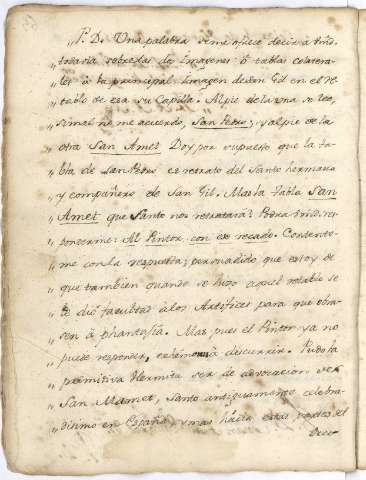 „ P. D. Una palabra se me ofrece decir à Vmd.
„ todavia sobre dos de Imagenes: ò tablas colatera-
„ les à la principal Imagen de San Gil en el re-
„ tablo de esa su Capilla. Al pie de la una se lee,
„ si mal no me acuerdo, San Pedro; y al pie de la
„ otra San Amet. Doy por supuesto que la ta-
„ bla de San Pedro es retrato del Santo hermano
„ y compañero de San Gil. Mas la tabla San
„ Amet que Santo nos retratarà? Podra Vmd. res-
„ ponderme: Al Pintor con ese recado. Contento-
„ me con la respuesta; persuadido que estoy de
„ que tambien quando se hizo aquel retablo se
„ le diò facultad à los Artifices para que obra-
„ sen à phantasia. Mas pues el Pintor ya no
„ puede responder, echémonos à discurrir. Pudo la
„ primitiva Hermita ser de advocacion de
„ San Mamet, Santo antiguamente celebra-
„ dísimo en España, y mas hàcia estas partes del